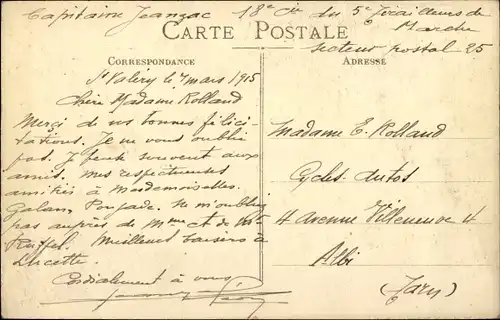 Capitaine Jeanzac 18e Cie du 5e Tirailleurs de
Marche
CARTE POSTALE
secteur postal 25
CORRESPONDANCE
ADRESSE
St Valéry le 7 mars 1915
Chère Madame Rolland
Merci de vos bonnes félici-
tations. Je ne vous oublie
pas. Je pense souvent aux
amis. Mes respectueuses
amitiés à Mesdemoiselles
Galan, Pougade. Ne m'oubliez
pas auprès de Mme et de
Ruffel. Meilleurs baisers à
Lucette.
Cordialement à vous
Madame E. Rolland
Cycles Autos
4 Avenue Villeneuve 4
Albi
(Tarn)